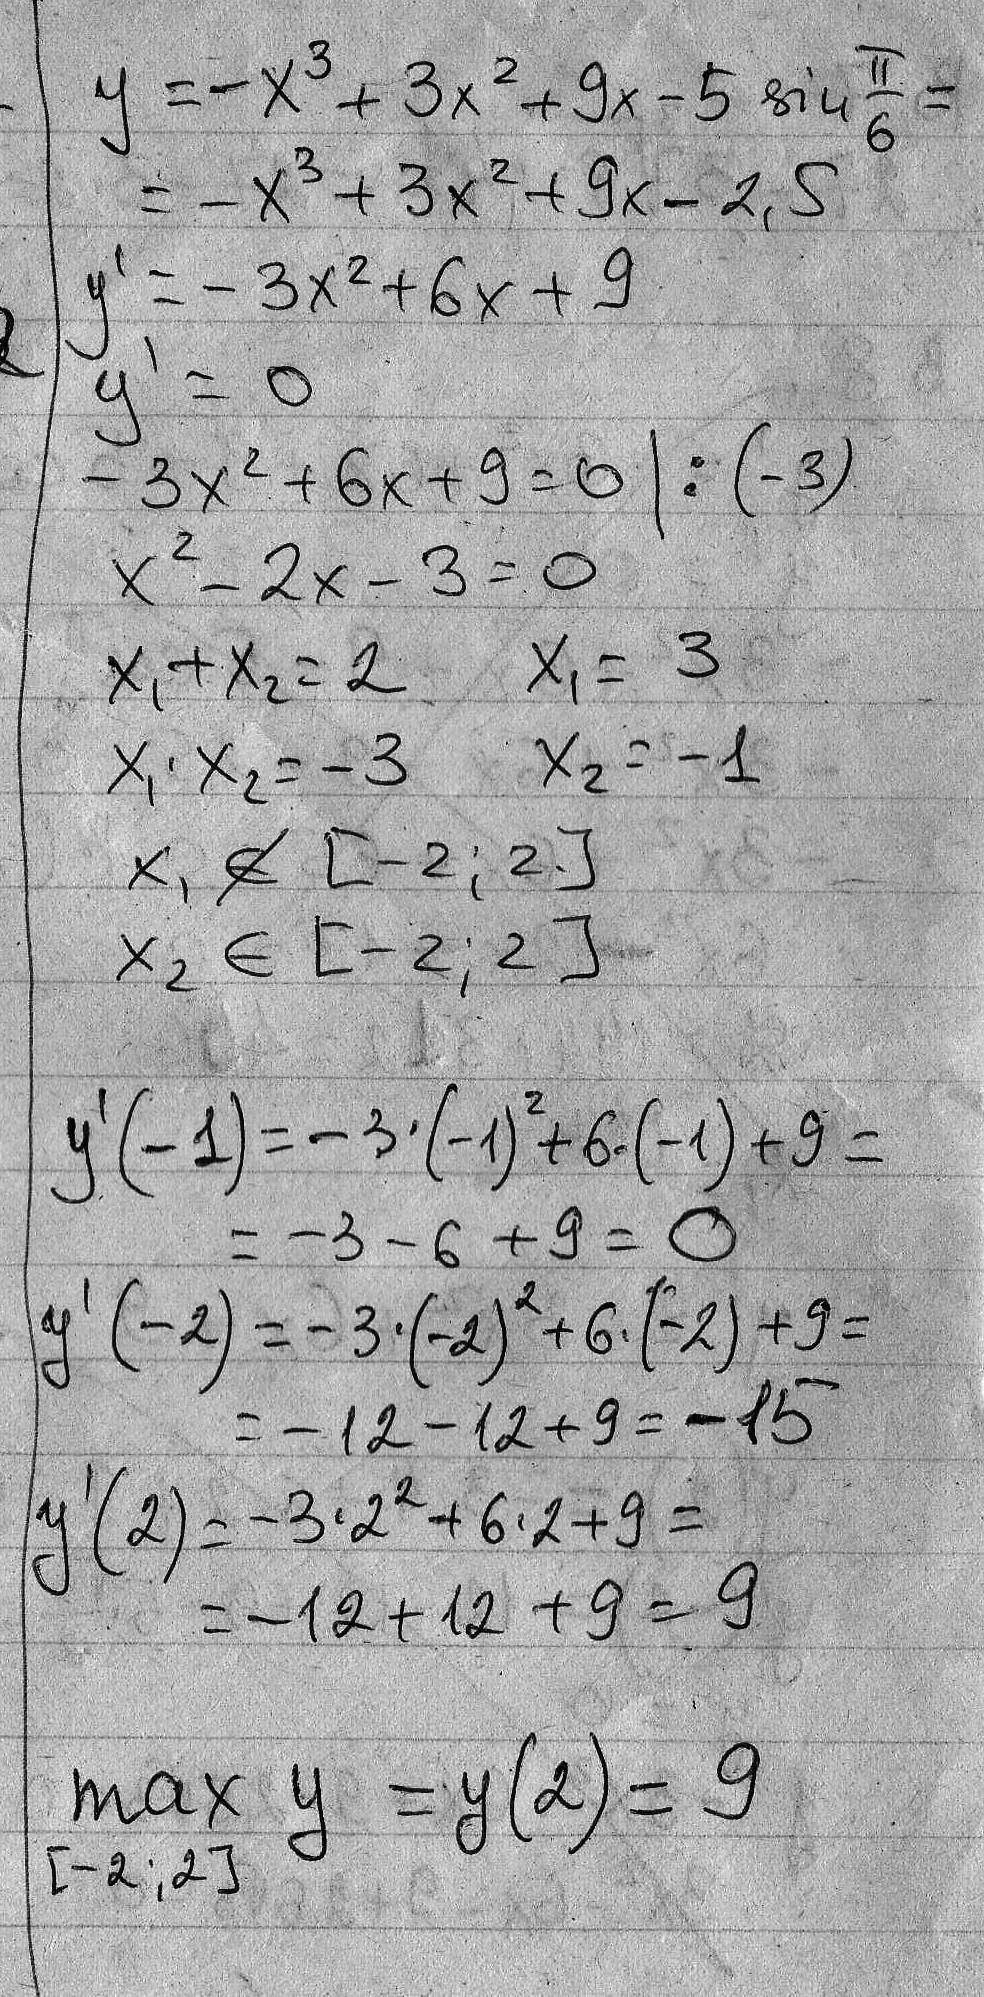 y = -x³ + 3x² + 9x - 5 sin π/6 =
= -x³ + 3x² + 9x - 2,5
y' = -3x² + 6x + 9
y' = 0
-3x² + 6x + 9 = 0 | : (-3)
x² - 2x - 3 = 0
x₁ + x₂ = 2 x₁ = 3
x₁ · x₂ = -3 x₂ = -1
x₁ ∉ [-2; 2]
x₂ ∈ [-2; 2]
y'(-1) = -3·(-1)² + 6·(-1) + 9 =
= -3 - 6 + 9 = 0
y'(-2) = -3·(-2)² + 6·(-2) + 9 =
= -12 - 12 + 9 = -15
y'(2) = -3·2² + 6·2 + 9 =
= -12 + 12 + 9 = 9
max y = y(2) = 9
[-2; 2]